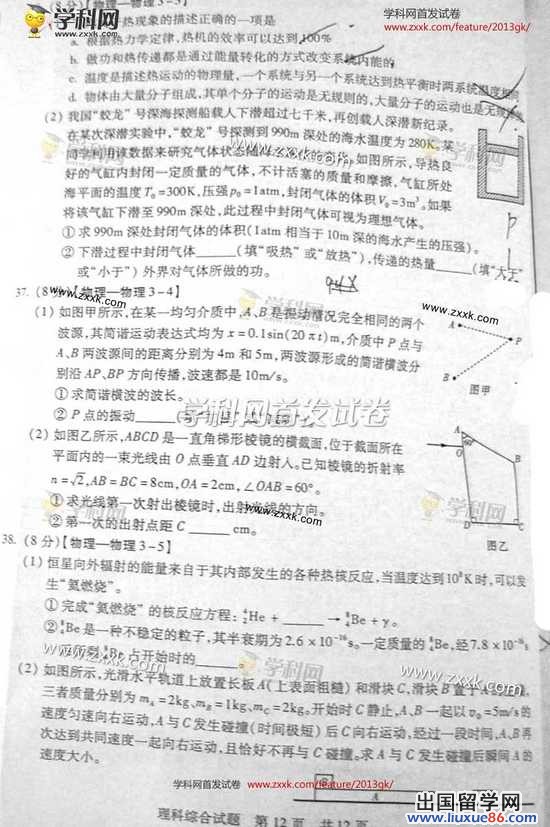 学科网首发试卷
www.zxxk.com/feature/2013gk/
学科网
www.zxxk.com
热现象的描述正确的一项是
a. 根据热力学定律,热机的效率可以达到100%
b. 做功和热传递都是通过能量转化的方式改变系统内能的
c. 温度是描述热运动的物理量,一个系统与另一个系统达到热平衡时两系统温度相同
d. 物体由大量分子组成,其单个分子的运动是无规则的,大量分子的运动也是无规
(2) 我国“蛟龙”号深海探测船载人下潜超过七千米,再创载人深潜新纪录。
在某次深潜实验中,“蛟龙”号探测到990m深处的海水温度为280K。某
同学利用该数据来研究气体状态 如图所示,导热良
www.zxxk.com
好的气缸内封闭一定质量的气体,不计活塞的质量和摩擦,气缸所处
海平面的温度T₀=300K,压强p₀=1atm,封闭气体的体积V₀=3m³。如果
将该气缸下潜至990m深处,此过程中封闭气体可视为理想气体。
① 求990m深处封闭气体的体积(1atm相当于10m深的海水产生的压强)。
② 下潜过程中封闭气体______(填“吸热”或“放热”),传递的热量______(填“大于”
或“小于”)外界对气体所做的功。
37. (8分)【物理—物理3-4】
学科网
www.zxxk.com
(1) 如图甲所示,在某一均匀介质中,A、B是振动情况完全相同的两个
波源,其简谐运动表达式均为x=0.1sin(20πt)m,介质中P点与
A、B两波源间的距离分别为4m和5m,两波源形成的简谐横波分
别沿AP、BP方向传播,波速都是10m/s。
A
P
B
图甲
① 求简谐横波的波长。
② P点的振动______
学科网首发试卷
(2) 如图乙所示,ABCD是一直角梯形棱镜的横截面,位于截面所在
平面内的一束光线由O点垂直AD边射入。已知棱镜的折射率
n=√2,AB=BC=8cm,OA=2cm,∠OAB=60°。
① 求光线第一次射出棱镜时,出射光线的方向。
② 第一次的出射点距C ______ cm。
www.zxxk.com
学科网
A
60°
O
B
D
C
图乙
38. (8分)【物理—物理3-5】
(1) 恒星向外辐射的能量来自于其内部发生的各种热核反应,当温度达到10⁸K时,可以发
生“氦燃烧”。
① 完成“氦燃烧”的核反应方程:⁴₂He + ______ → ⁸₄Be + γ。
② ⁸₄Be是一种不稳定的粒子,其半衰期为2.6×10⁻¹⁶s。一定质量的⁸₄Be,经7.8×10⁻¹⁶s
⁸₄Be占开始时的______。
学科网
www.zxxk.com
(2) 如图所示,光滑水平轨道上放置长板A(上表面粗糙)和滑块C,滑块B置于
三者质量分别为m_A=2kg、m_B=1kg、m_C=2kg。开始时C静止,A、B一起以v₀=5m/s的
速度匀速向右运动,A与C发生碰撞(时间极短)后C向右运动,经过一段时间,A、B再
次达到共同速度一起向右运动,且恰好不再与C碰撞。求A与C发生碰撞后瞬间A的
速度大小。
学科网首发试卷
www.zxxk.com/feature/2013gk/
B
A
理科综合试题 第12页 共12页
出国留学网
www.liuxue86.com